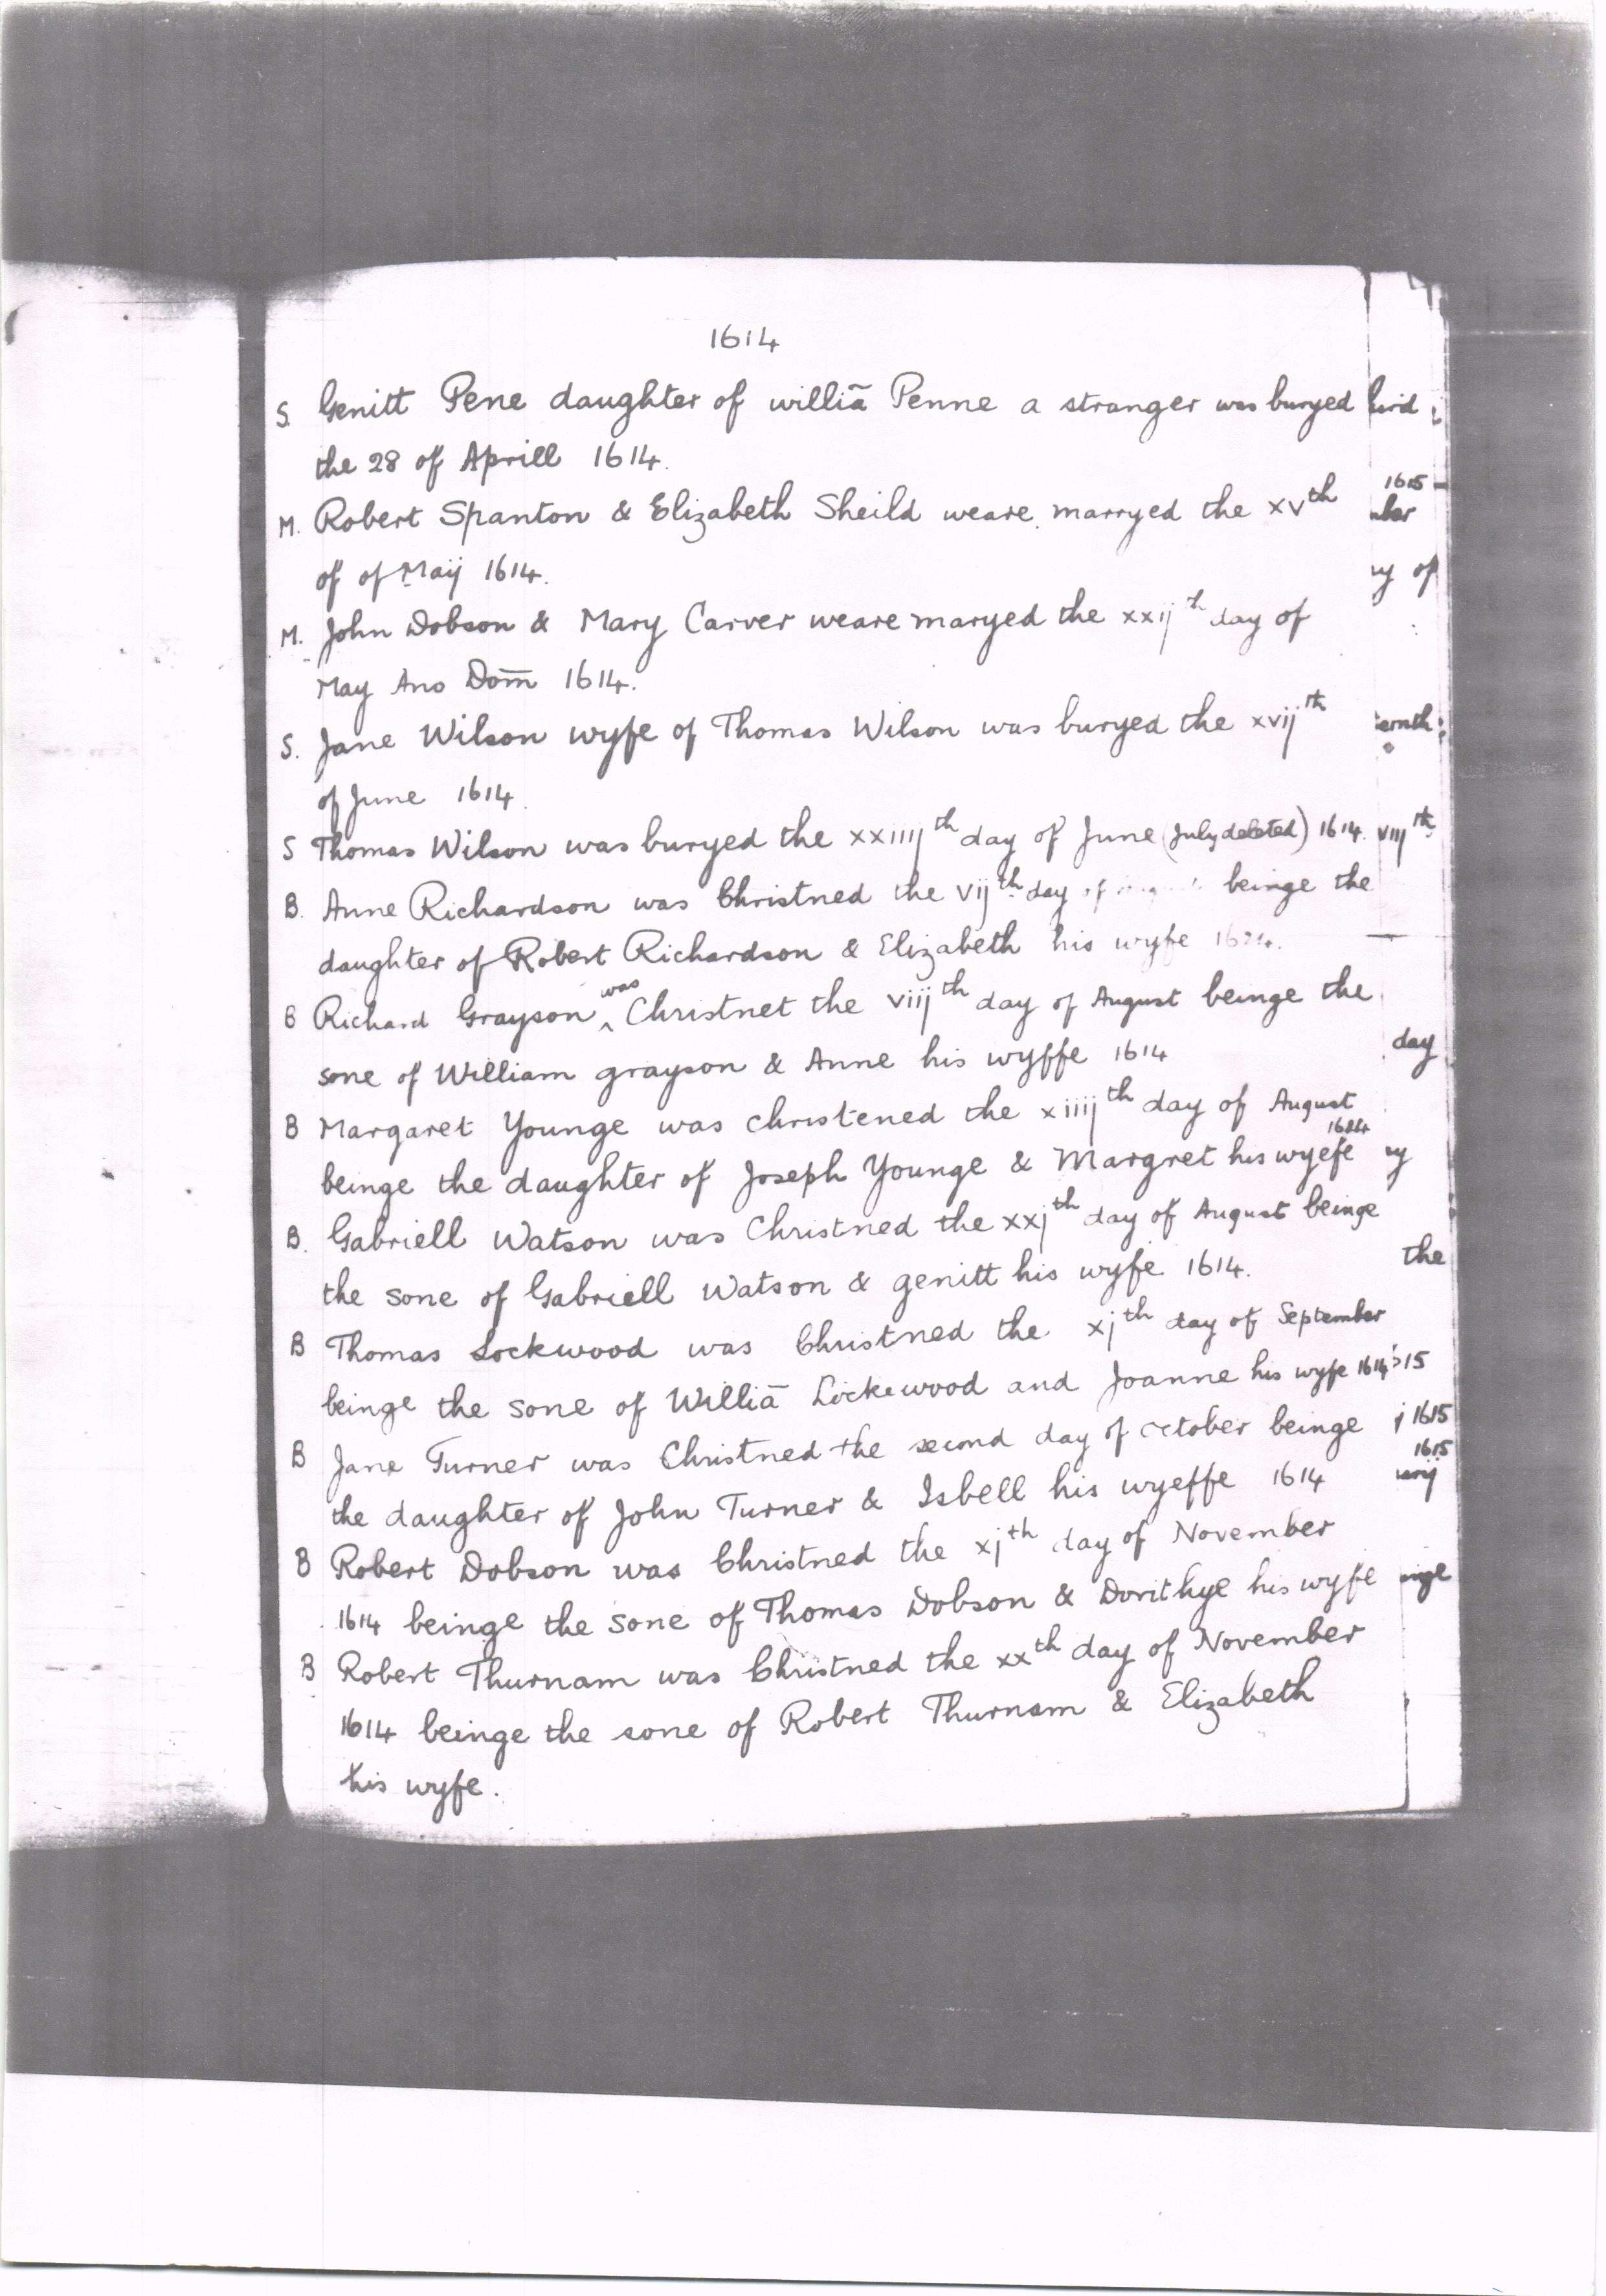 1614
S. Genitt Pene daughter of williā Penne a stranger was buryed
the 28 of Aprill 1614.
M. Robert Spanton & Elizabeth Sheild weare marryed the xvth
of of Maij 1614.
M. John Dobson & Mary Carver weare maryed the xxijth day of
May Ano Dom̄ 1614.
S. Jane Wilson wyfe of Thomas Wilson was buryed the xvijth
of June 1614.
S Thomas Wilson was buryed the xxiiijth day of June (July deleted) 1614. viijth
B. Anne Richardson was Christned the vijth day of beinge the
daughter of Robert Richardson & Elizabeth his wyfe
B Richard Grayson ^was Christnet the viijth day of August beinge the
sone of William grayson & Anne his wyffe 1614
day
B Margaret Younge was christened the xiiijth day of August
1614
beinge the daughter of Joseph Younge & Margret his wyefe
B. Gabriell Watson was Christned the xxjth day of August beinge
the sone of Gabriell Watson & genitt his wyfe 1614.
the
B Thomas Lockwood was Christned the xjth day of September
beinge the sone of Williā Lockewood and Joanne his wyfe 1614 15
B Jane Turner was Christned the second day of october beinge j 1615
1615
the daughter of John Turner & Isbell his wyeffe 1614
B Robert Dobson was Christned the xjth day of November
1614 beinge the sone of Thomas Dobson & Dorithye his wyfe inge
B Robert Thurnam was Christned the xxth day of November
1614 beinge the sone of Robert Thurnam & Elizabeth
his wyfe.